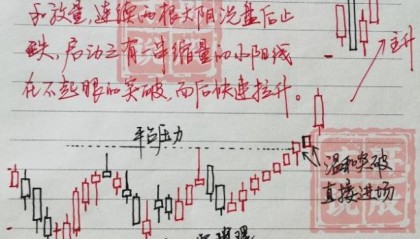 不放量,连续两根大阴洗盘后止
跌,启动之有一串缩量的小阳线
在不起眼的突破,而后快速拉升。
拉升
平台压力
温和突破
直接进场